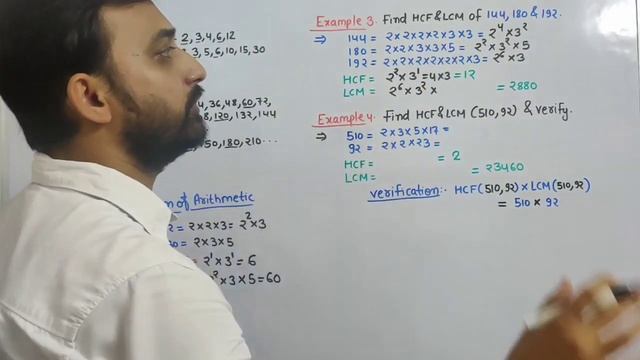 2, 3, 4, 6, 12
3, 5, 6, 10, 15, 30
4, 36, 48, 60, 72,
8, 120, 132, 144
150, 180, 210 ...
m of Arithmetic
2 = 2×2×3 = 2²×3
30 = 2×3×5
= 2¹×3¹ = 6
2²×3×5=60
Example 3. Find HCF & LCM of 144, 180 & 192.
⇒ 144 = 2×2×2×2×3×3 = 2⁴×3²
180 = 2×2×3×3×5 = 2²×3²×5
192 = 2×2×2×2×2×2×3 = 2⁶×3
HCF = 2²×3¹ = 4×3 = 12
LCM = 2⁶×3²× = 2880
Example 4. Find HCF & LCM (510, 92) & verify.
⇒ 510 = 2×3×5×17 =
92 = 2×2×23 =
HCF = = 2
LCM = = 23460
verification:- HCF(510,92) × LCM(510,92)
= 510 × 92